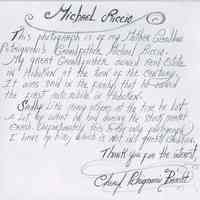 Michael Riccio
This photograph is of my Mother Caroline
Grandfather Michael Riccio.
My great Grandfather owned Real Estate
in Hoboken at the turn of the century.
It was said in the family that he owned
the first automobile in Hoboken.
Sadly Like many others at the time he lost
a lot of what he had during the stock market
crash. Unfortunately this is the only photograph
I have of him, which is my great Grandfather.
Thank you for the interest,
Cheryl